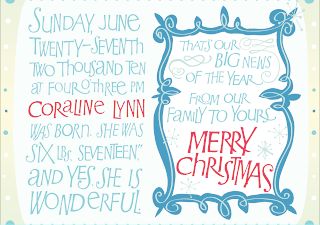 SUNDAY, JUNE
TWENTY-SEVENTH
TWO THOUSAND TEN
AT FOUR O'THREE PM
CORALINE LYNN
WAS BORN. SHE WAS
SIX LBS. SEVENTEEN."
AND YES, SHE IS
WONDERFUL.
THAT'S OUR
BIG NEWS
OF THE YEAR
FROM OUR
FAMILY TO YOURS
MERRY
CHRISTMAS